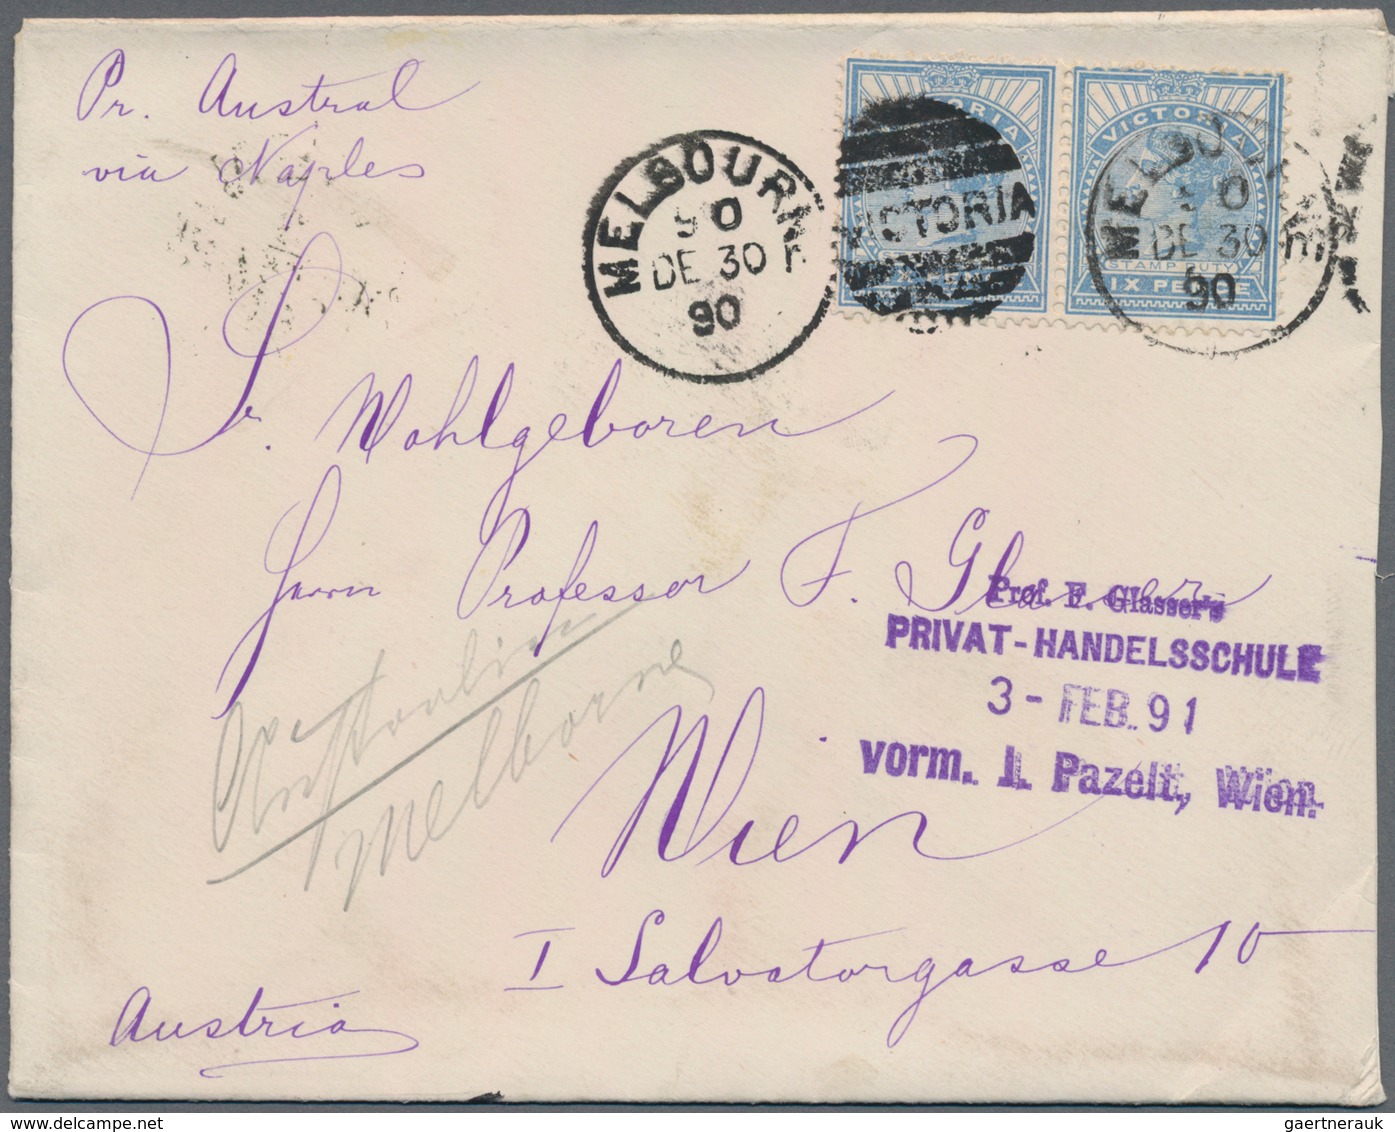 Pr. Austral
via Naples
MELBOURN
90
DE 30
90
VICTORIA
VICTORIA
STAMP DUTY
IX PENCE
MELBOU
DE 30
90
Sr. Wohlgeboren
Herrn Professor F. Glasser
Prof. F. Glasser's
PRIVAT-HANDELSSCHULE
3 - FEB. 91
vorm. I. Pazelt, Wien.
Australien
Melborne
Wien
I Salvatorgasse 10
Austria
gaertnerauk